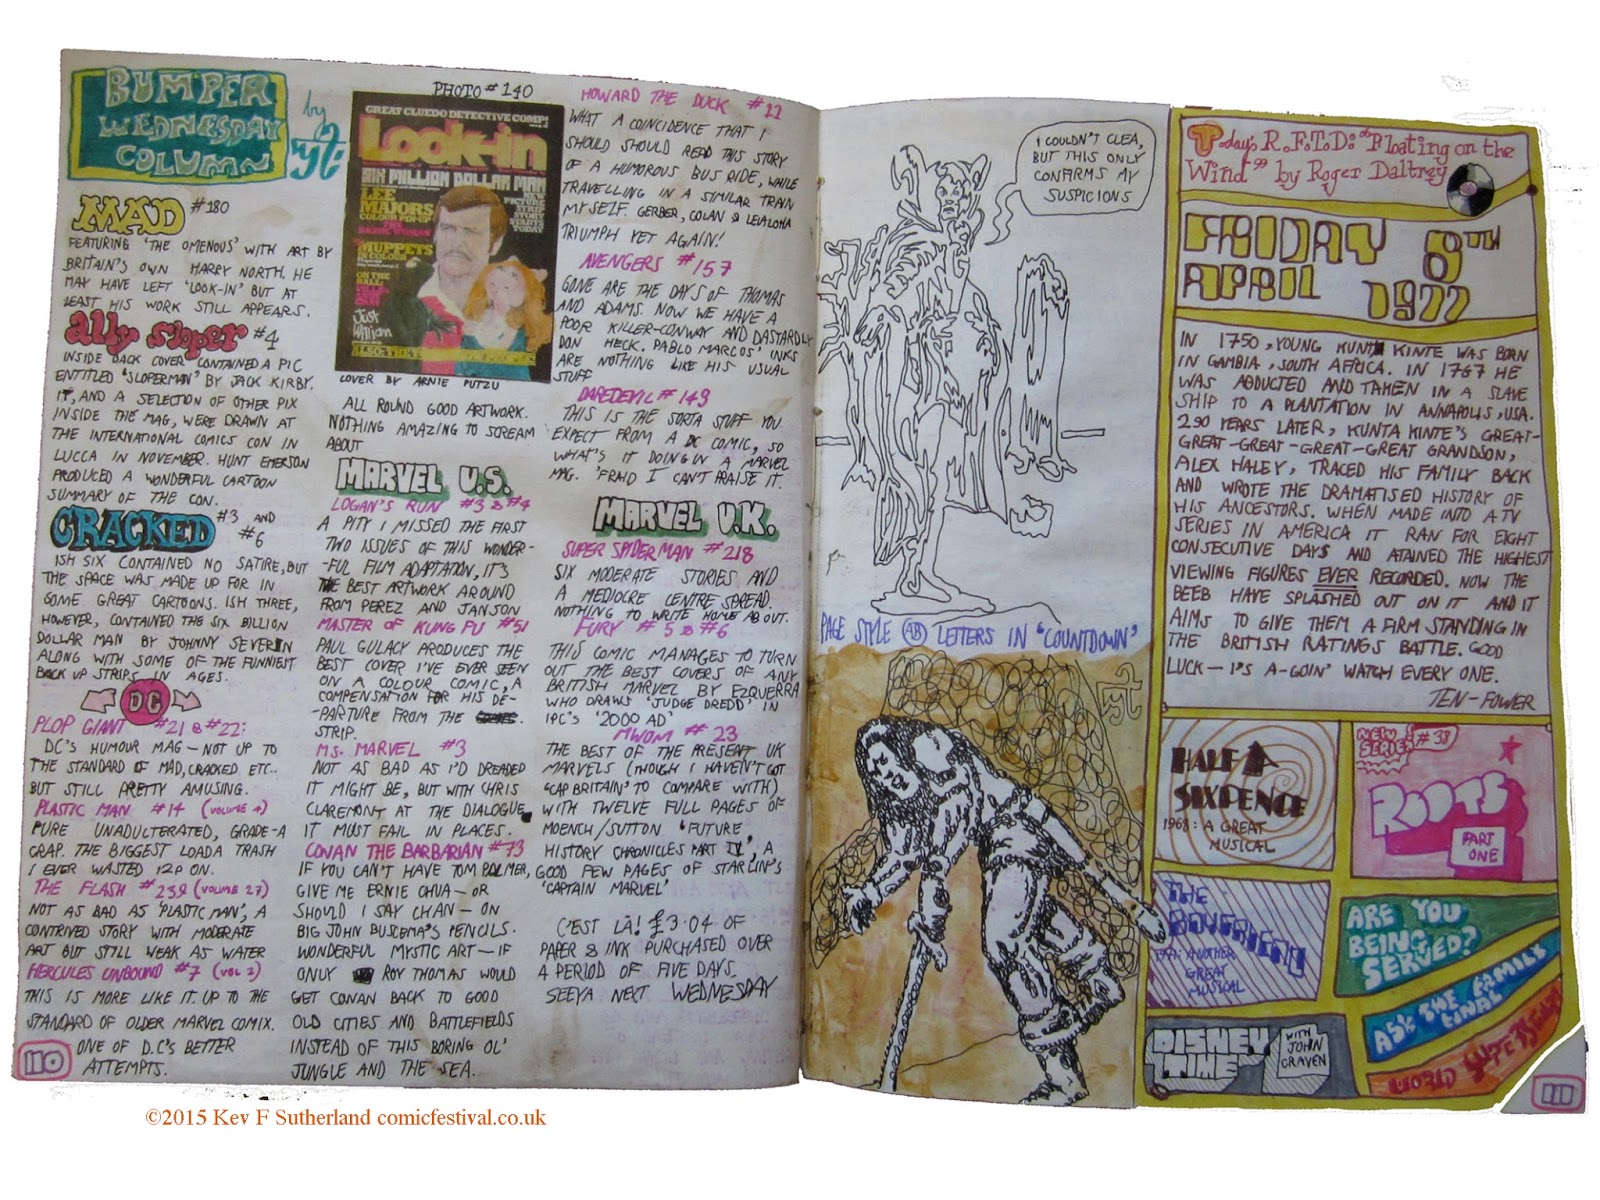 BUMPER
WEDNESDAY
COLUMN
by
MAD #180
FEATURING 'THE OMENOUS' WITH ART BY
BRITAIN'S OWN HARRY NORTH. HE
MAY HAVE LEFT 'LOOK-IN' BUT AT
LEAST HIS WORK STILL APPEARS.
ally sloper #4
INSIDE BACK COVER CONTAINED A PIC
ENTITLED 'SLOPERMAN' BY JACK KIRBY.
IT, AND A SELECTION OF OTHER PIX
INSIDE THE MAG, WERE DRAWN AT
THE INTERNATIONAL COMICS CON IN
LUCCA IN NOVEMBER. HUNT EMERSON
PRODUCED A WONDERFUL CARTOON
SUMMARY OF THE CON.
CRACKED #3 AND
#6
ISH SIX CONTAINED NO SATIRE, BUT
THE SPACE WAS MADE UP FOR IN
SOME GREAT CARTOONS. ISH THREE,
HOWEVER, CONTAINED THE SIX BILLION
DOLLAR MAN BY JOHNNY SEVERIN
ALONG WITH SOME OF THE FUNNIEST
BACK UP STRIPS IN AGES.
DC
PLOP GIANT #21 & #22:
DC'S HUMOUR MAG — NOT UP TO
THE STANDARD OF MAD, CRACKED ETC..
BUT STILL PRETTY AMUSING.
PLASTIC MAN #14 (VOLUME 4)
PURE UNADULTERATED, GRADE-A
CRAP. THE BIGGEST LOADA TRASH
I EVER WASTED 12P ON.
THE FLASH #239 (VOLUME 27)
NOT AS BAD AS 'PLASTIC MAN', A
CONTRIVED STORY WITH MODERATE
ART BUT STILL WEAK AS WATER
HERCULES UNBOUND #7 (VOL 2)
THIS IS MORE LIKE IT. UP TO THE
STANDARD OF OLDER MARVEL COMIX.
ONE OF D.C'S BETTER
ATTEMPTS.
110
PHOTO #140
GREAT CLUEDO DETECTIVE COMP!
Look-in
SIX MILLION DOLLAR MAN
LEE
MAJORS
COLOUR PIN-UP
PICTURE
STRIP
STORY
STARTS
TODAY
THE
BIONIC WOMAN
MUPPETS
IN COLOUR
ON THE
BALL
Just
William
COVER BY ARNIE PUTZU
ALL ROUND GOOD ARTWORK.
NOTHING AMAZING TO SCREAM
ABOUT
MARVEL U.S.
LOGAN'S RUN #3 & #4
A PITY I MISSED THE FIRST
TWO ISSUES OF THIS WONDER-
-FUL FILM ADAPTATION, IT'S
THE BEST ARTWORK AROUND
FROM PEREZ AND JANSON
MASTER OF KUNG FU #51
PAUL GULACY PRODUCES THE
BEST COVER I'VE EVER SEEN
ON A COLOUR COMIC, A
COMPENSATION FOR HIS DE-
-PARTURE FROM THE .
STRIP.
MS. MARVEL #3
NOT AS BAD AS I'D DREADED
IT MIGHT BE, BUT WITH CHRIS
CLAREMONT AT THE DIALOGUE
IT MUST FAIL IN PLACES.
CONAN THE BARBARIAN #73
IF YOU CAN'T HAVE TOM PALMER,
GIVE ME ERNIE CHUA — OR
SHOULD I SAY CHAN — ON
BIG JOHN BUSCEMA'S PENCILS.
WONDERFUL MYSTIC ART — IF
ONLY ROY THOMAS WOULD
GET CONAN BACK TO GOOD
OLD CITIES AND BATTLEFIELDS
INSTEAD OF THIS BORING OL'
JUNGLE AND THE SEA.
HOWARD THE DUCK #11
WHAT A COINCIDENCE THAT I
SHOULD SHOULD READ THIS STORY
OF A HUMOROUS BUS RIDE, WHILE
TRAVELLING IN A SIMILAR TRAIN
MYSELF. GERBER, COLAN & LEIALOHA
TRIUMPH YET AGAIN!
AVENGERS #157
GONE ARE THE DAYS OF THOMAS
AND ADAMS. NOW WE HAVE A
POOR KILLER-CONWAY AND DASTARDLY
DON HECK. PABLO MARCOS' INKS
ARE NOTHING LIKE HIS USUAL
STUFF
DAREDEVIL #143
THIS IS THE SORTA STUFF YOU
EXPECT FROM A DC COMIC, SO
WHAT'S IT DOING IN A MARVEL
MAG. 'FRAID I CAN'T PRAISE IT.
MARVEL U.K.
SUPER SPIDERMAN #218
SIX MODERATE STORIES AND
A MEDIOCRE CENTRE SPREAD.
NOTHING TO WRITE HOME ABOUT.
FURY #5 & #6
THIS COMIC MANAGES TO TURN
OUT THE BEST COVERS OF ANY
BRITISH MARVEL BY EZQUERRA
WHO DRAWS 'JUDGE DREDD' IN
IPC'S '2000 AD'
MWOM #23
THE BEST OF THE PRESENT UK
MARVELS (THOUGH I HAVEN'T GOT
'CAP BRITAIN' TO COMPARE WITH)
WITH TWELVE FULL PAGES OF
MOENCH/SUTTON 'FUTURE
HISTORY CHRONICLES PART IV', A
GOOD FEW PAGES OF STARLIN'S
'CAPTAIN MARVEL'
C'EST LÀ! £3.04 OF
PAPER & INK PURCHASED OVER
A PERIOD OF FIVE DAYS.
SEEYA NEXT WEDNESDAY
I COULDN'T CLEA,
BUT THIS ONLY
CONFIRMS MY
SUSPICIONS
PAGE STYLE AB LETTERS IN "COUNTDOWN"
Today's R.F.T.D: "Floating on the
Wind" by Roger Daltrey
FRIDAY 8TH
APRIL 1977
IN 1750, YOUNG KUNTA KINTE WAS BORN
IN GAMBIA, SOUTH AFRICA. IN 1767 HE
WAS ABDUCTED AND TAKEN IN A SLAVE
SHIP TO A PLANTATION IN ANNAPOLIS, USA.
290 YEARS LATER, KUNTA KINTE'S GREAT-
GREAT-GREAT-GREAT-GREAT GRANDSON,
ALEX HALEY, TRACED HIS FAMILY BACK
AND WROTE THE DRAMATISED HISTORY OF
HIS ANCESTORS. WHEN MADE INTO A TV
SERIES IN AMERICA IT RAN FOR EIGHT
CONSECUTIVE DAYS AND ATAINED THE HIGHEST
VIEWING FIGURES EVER RECORDED. NOW THE
BEEB HAVE SPLASHED OUT ON IT AND IT
AIMS TO GIVE THEM A FIRM STANDING IN
THE BRITISH RATINGS BATTLE. GOOD
LUCK — I'S A-GOIN' WATCH EVERY ONE.
TEN-FOWER
HALF A
SIXPENCE
1968: A GREAT
MUSICAL
NEW
SERIES #38
ROOTS
PART
ONE
THE
BOYFRIEND
1971: ANOTHER
GREAT
MUSICAL
ARE YOU
BEING
SERVED?
ASK THE FAMILY
FINAL
DISNEY
TIME
WITH
JOHN
CRAVEN
WORLD SUPERSTARS
111
©2015 Kev F Sutherland comicfestival.co.uk